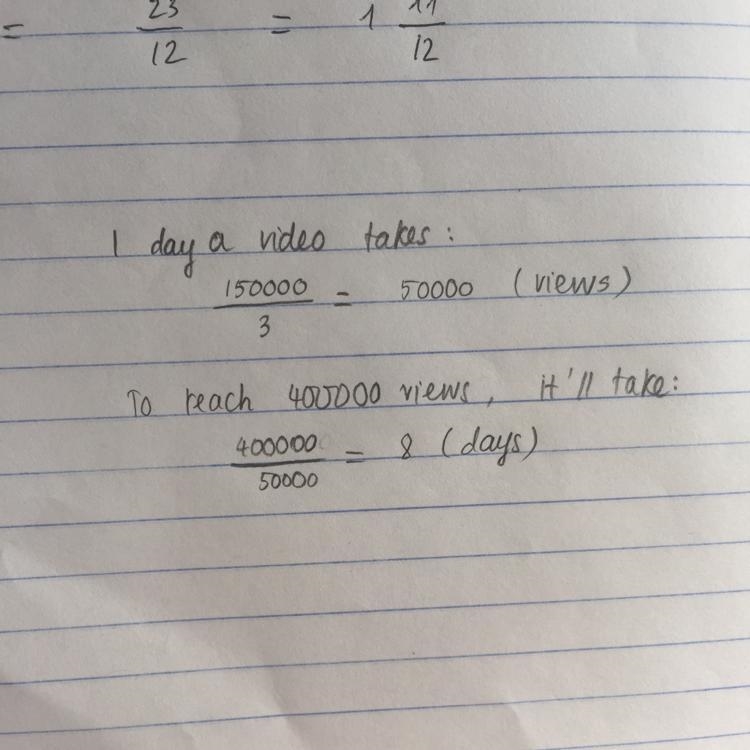 = 23/12 = 1 11/12
1 day a video takes:
150000/3 = 50000 (views)
To reach 400000 views, it'll take:
400000/50000 = 8 (days)